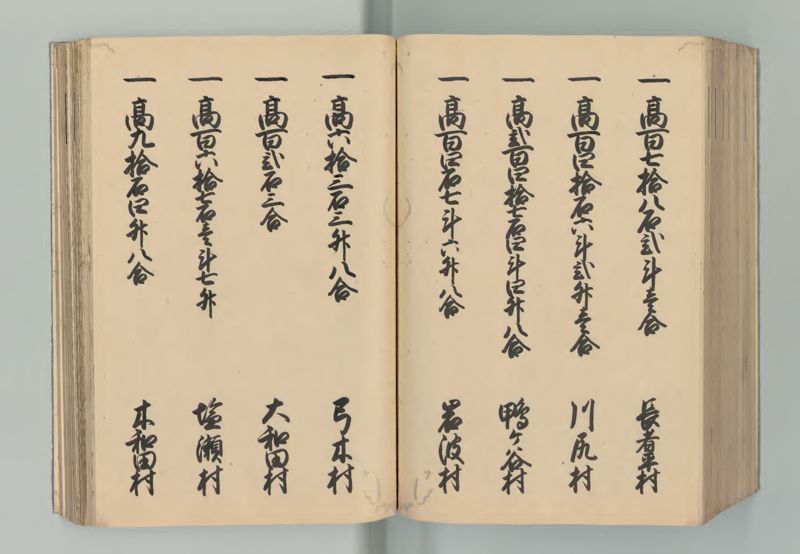 一 高百七拾八石弐斗壱合 長者原村
一 高百四拾石六斗弐升壱合 川尻村
一 高弐百四拾七石四斗四升八合 鴨ヶ谷村
一 高百四石七斗六升八合 岩波村
一 高六拾三石三升八合 弓木村
一 高百弐石三合 大和田村
一 高百六拾七石壱斗七升 塩瀬村
一 高九拾石四升八合 木和田村